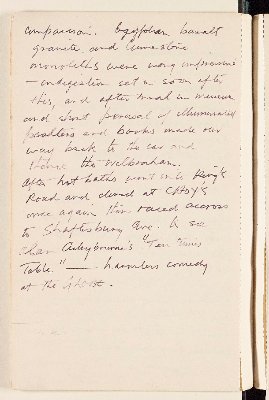 comparison. Egyptian basalt
granite and limestone
monoliths were very impressive
– indigestion set in soon after
this, and after meal in museum
and short perusal of illuminated
psalters and books made our
way back to the car and
thence the Wilbraham.
After hot baths went on to King's
Road and dined at CHOYS
once again then raced across
to Shaftesbury Ave. to see
Alan Ayckbourne's "Ten Times
Table." —— harmless comedy
at the